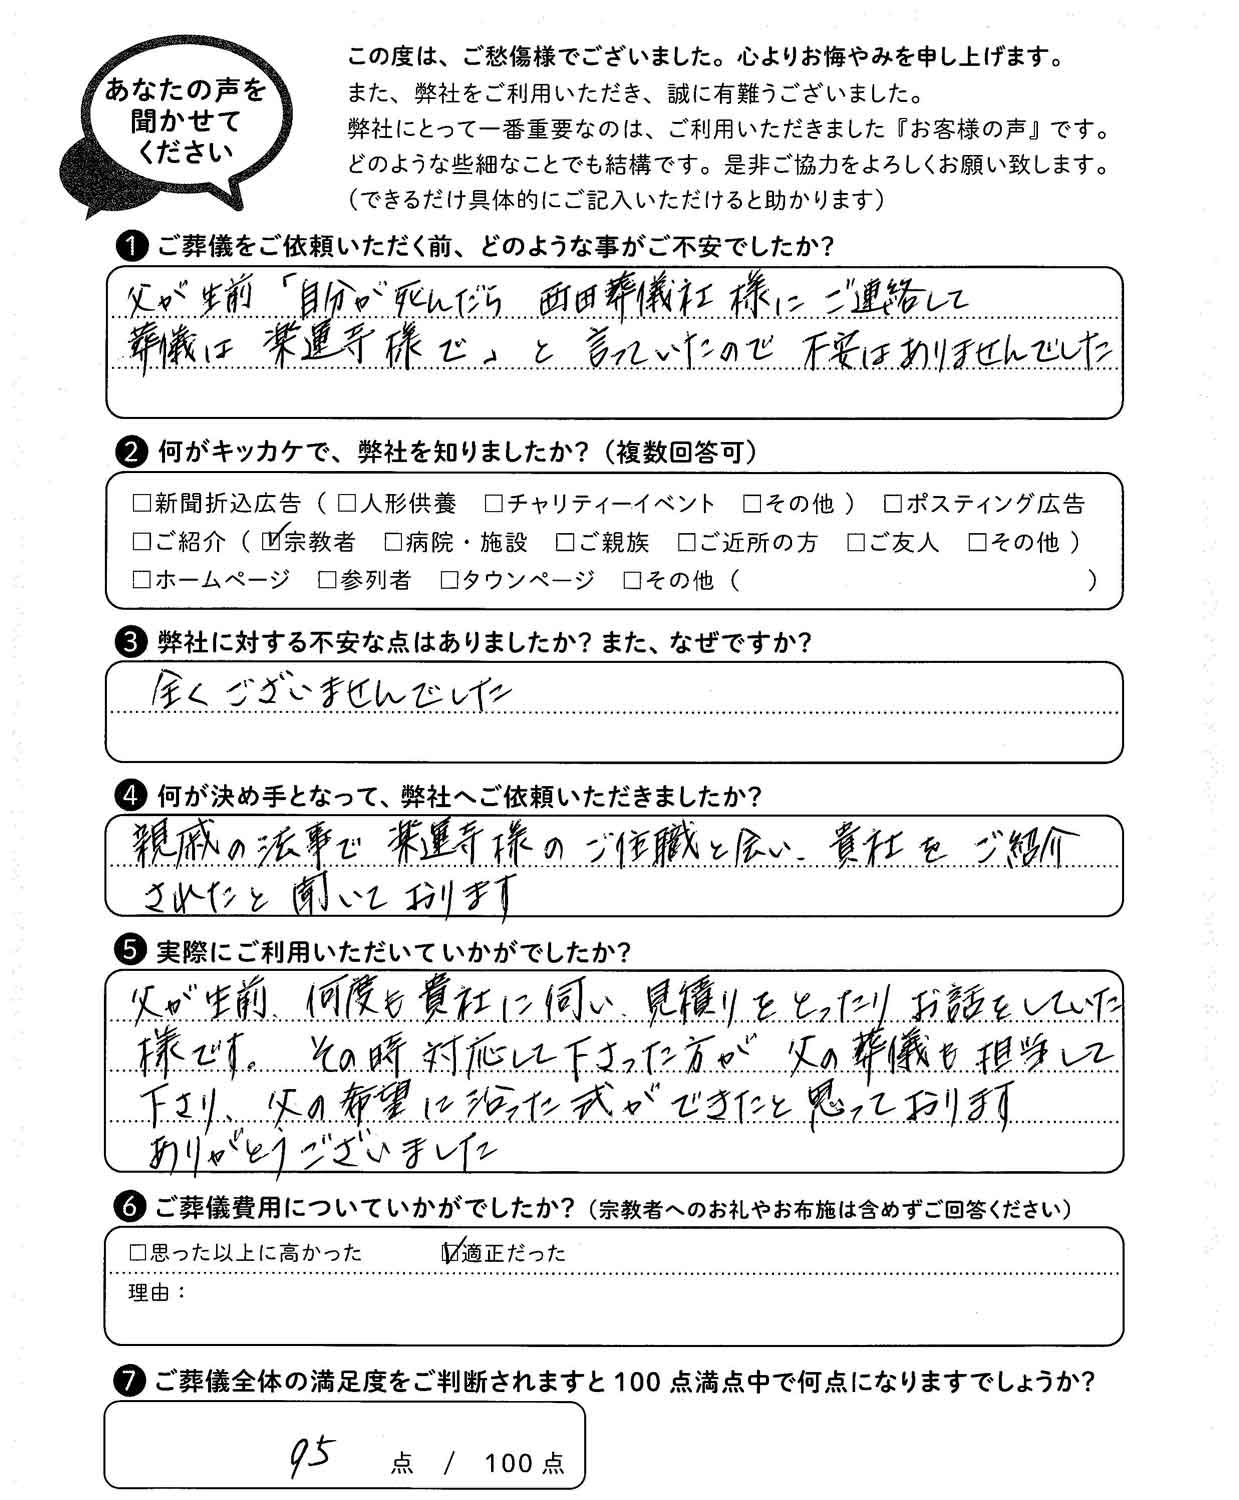 あなたの声を
聞かせて
ください
この度は、ご愁傷様でございました。心よりお悔やみを申し上げます。
また、弊社をご利用いただき、誠に有難うございました。
弊社にとって一番重要なのは、ご利用いただきました『お客様の声』です。
どのような些細なことでも結構です。是非ご協力をよろしくお願い致します。
（できるだけ具体的にご記入いただけると助かります）
❶ ご葬儀をご依頼いただく前、どのような事がご不安でしたか？
父が生前「自分が死んだら 西田葬儀社様にご連絡して
葬儀は 楽運寺様で」と 言っていたので 不安はありませんでした
❷ 何がキッカケで、弊社を知りましたか？（複数回答可）
□新聞折込広告（ □人形供養 □チャリティーイベント □その他 ） □ポスティング広告
□ご紹介（ ☑宗教者 □病院・施設 □ご親族 □ご近所の方 □ご友人 □その他 ）
□ホームページ □参列者 □タウンページ □その他（ ）
❸ 弊社に対する不安な点はありましたか？また、なぜですか？
全くございませんでした
❹ 何が決め手となって、弊社へご依頼いただきましたか？
親戚の法事で 楽運寺様の ご住職と会い、貴社を ご紹介
されたと 聞いて おります
❺ 実際にご利用いただいていかがでしたか？
父が生前、何度も貴社に伺い、見積りをとったり お話をしていた
様です。 その時 対応して下さった方が 父の葬儀も担当して
下さり、父の希望に沿った式ができたと思っております
ありがとうございました
❻ ご葬儀費用についていかがでしたか？（宗教者へのお礼やお布施は含めずご回答ください）
□思った以上に高かった ☑適正だった
理由：
❼ ご葬儀全体の満足度をご判断されますと 100 点満点中で何点になりますでしょうか？
95 点 / 100 点